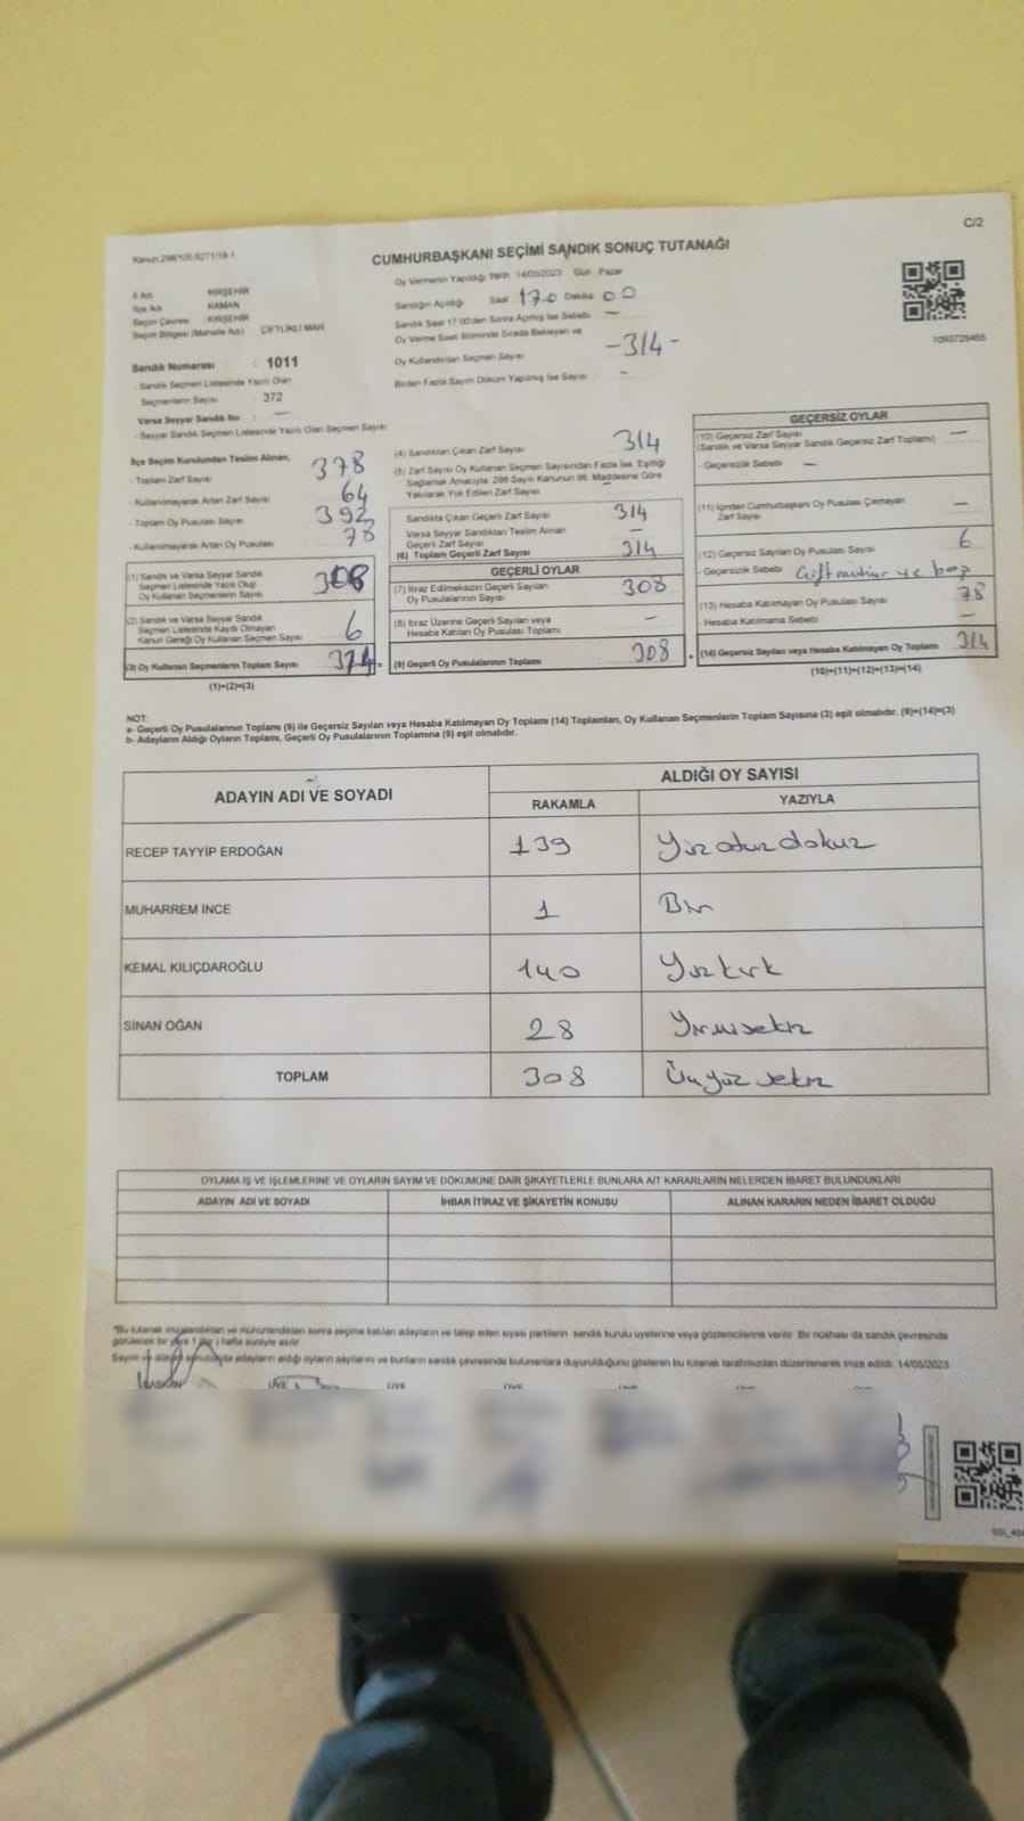 C/2
Kanun:298/105,6271/18-1
CUMHURBAŞKANI SEÇİMİ SANDIK SONUÇ TUTANAĞI
Oy Vermenin Yapıldığı Tarih 14/05/2023 Gün Pazar
İl Adı KIRŞEHİR
İlçe Adı KAMAN
Seçim Çevresi KIRŞEHİR
Seçim Bölgesi (Mahalle Adı) ÇİFTLİKLİ MAH
Sandığın Açıldığı Saat 17.0 Dakika 00
Sandık Saat 17:00'den Sonra Açılmış İse Sebebi —
Oy Verme Saati Bitiminde Sırada Bekleyen ve
Oy Kullandırılan Seçmen Sayısı -314-
Birden Fazla Sayım Döküm Yapılmış İse Sayısı -
Sandık Numarası : 1011
- Sandık Seçmen Listesinde Yazılı Olan
Seçmenlerin Sayısı 372
Varsa Seyyar Sandık No : —
- Seyyar Sandık Seçmen Listesinde Yazılı Olan Seçmen Sayısı
İlçe Seçim Kurulundan Teslim Alınan,
- Toplam Zarf Sayısı 378
- Kullanılmayarak Artan Zarf Sayısı 64
- Toplam Oy Pusulası Sayısı 392
- Kullanılmayarak Artan Oy Pusulası 78
(1) Sandık ve Varsa Seyyar Sandık
Seçmen Listesinde Yazılı Olup
Oy Kullanan Seçmenlerin Sayısı 308
(2) Sandık ve Varsa Seyyar Sandık
Seçmen Listesinde Kayıtlı Olmayan
Kanun Gereği Oy Kullanan Seçmen Sayısı 6
(3) Oy Kullanan Seçmenlerin Toplam Sayısı =
(1)+(2)=(3)
(4) Sandıktan Çıkan Zarf Sayısı 314
(5) Zarf Sayısı Oy Kullanan Seçmen Sayısından Fazla İse, Eşitliği
Sağlamak Amacıyla 298 Sayılı Kanunun 98. Maddesine Göre
Yakılarak Yok Edilen Zarf Sayısı –
Sandıkta Çıkan Geçerli Zarf Sayısı 314
Varsa Seyyar Sandıktan Teslim Alınan
Geçerli Zarf Sayısı –
(6) Toplam Geçerli Zarf Sayısı 314
GEÇERLİ OYLAR
(7) İtiraz Edilmeksizin Geçerli Sayılan
Oy Pusulalarının Sayısı 308
(8) İtiraz Üzerine Geçerli Sayılan veya
Hesaba Katılan Oy Pusulası Toplamı –
(9) Geçerli Oy Pusulalarının Toplamı 308 +
GEÇERSİZ OYLAR
(10) Geçersiz Zarf Sayısı —
(Sandık ve Varsa Seyyar Sandık Geçersiz Zarf Toplamı)
- Geçersizlik Sebebi —
(11) İçinden Cumhurbaşkanı Oy Pusulası Çıkmayan
Zarf Sayısı —
(12) Geçersiz Sayılan Oy Pusulası Sayısı 6
- Geçersizlik Sebebi Çift mühür ve boş
(13) Hesaba Katılmayan Oy Pusulası Sayısı 78
- Hesaba Katılmama Sebebi —
(14) Geçersiz Sayılan veya Hesaba Katılmayan Oy Toplamı 314
(10)+(11)+(12)+(13)=(14)
NOT:
a- Geçerli Oy Pusulalarının Toplamı (9) ile Geçersiz Sayılan veya Hesaba Katılmayan Oy Toplamı (14) Toplamları, Oy Kullanan Seçmenlerin Toplam Sayısına (3) eşit olmalıdır. (9)+(14)=(3)
b- Adayların Aldığı Oyların Toplamı, Geçerli Oy Pusulalarının Toplamına (9) eşit olmalıdır.
ADAYIN ADI VE SOYADI ALDIĞI OY SAYISI
RAKAMLA YAZIYLA
RECEP TAYYİP ERDOĞAN 139 Yüz otuz dokuz
MUHARREM İNCE 1 Bir
KEMAL KILIÇDAROĞLU 140 Yüzkırk
SİNAN OĞAN 28 Yirmisekiz
TOPLAM 308 Üçyüz sekiz
OYLAMA İŞ VE İŞLEMLERİNE VE OYLARIN SAYIM VE DÖKÜMÜNE DAİR ŞİKAYETLERLE BUNLARA AİT KARARLARIN NELERDEN İBARET BULUNDUKLARI
ADAYIN ADI VE SOYADI İHBAR İTİRAZ VE ŞİKAYETİN KONUSU ALINAN KARARIN NEDEN İBARET OLDUĞU
*Bu tutanak imzalandıktan ve mühürlendikten sonra seçime katılan adayların ve talep eden siyasi partilerin sandık kurulu üyelerine veya gözlemcilerine verilir. Bir nüshası da sandık çevresinde
görülecek bir yere 1 (bir) hafta süreyle asılır.
Sayım ve döküm sonucuyla adayların aldığı oyların sayılarını ve bunların sandık çevresinde bulunanlara duyurulduğunu gösteren bu tutanak tarafımızdan düzenlenerek imza edildi. 14/05/2023
ÜYE ÜYE ÜYE